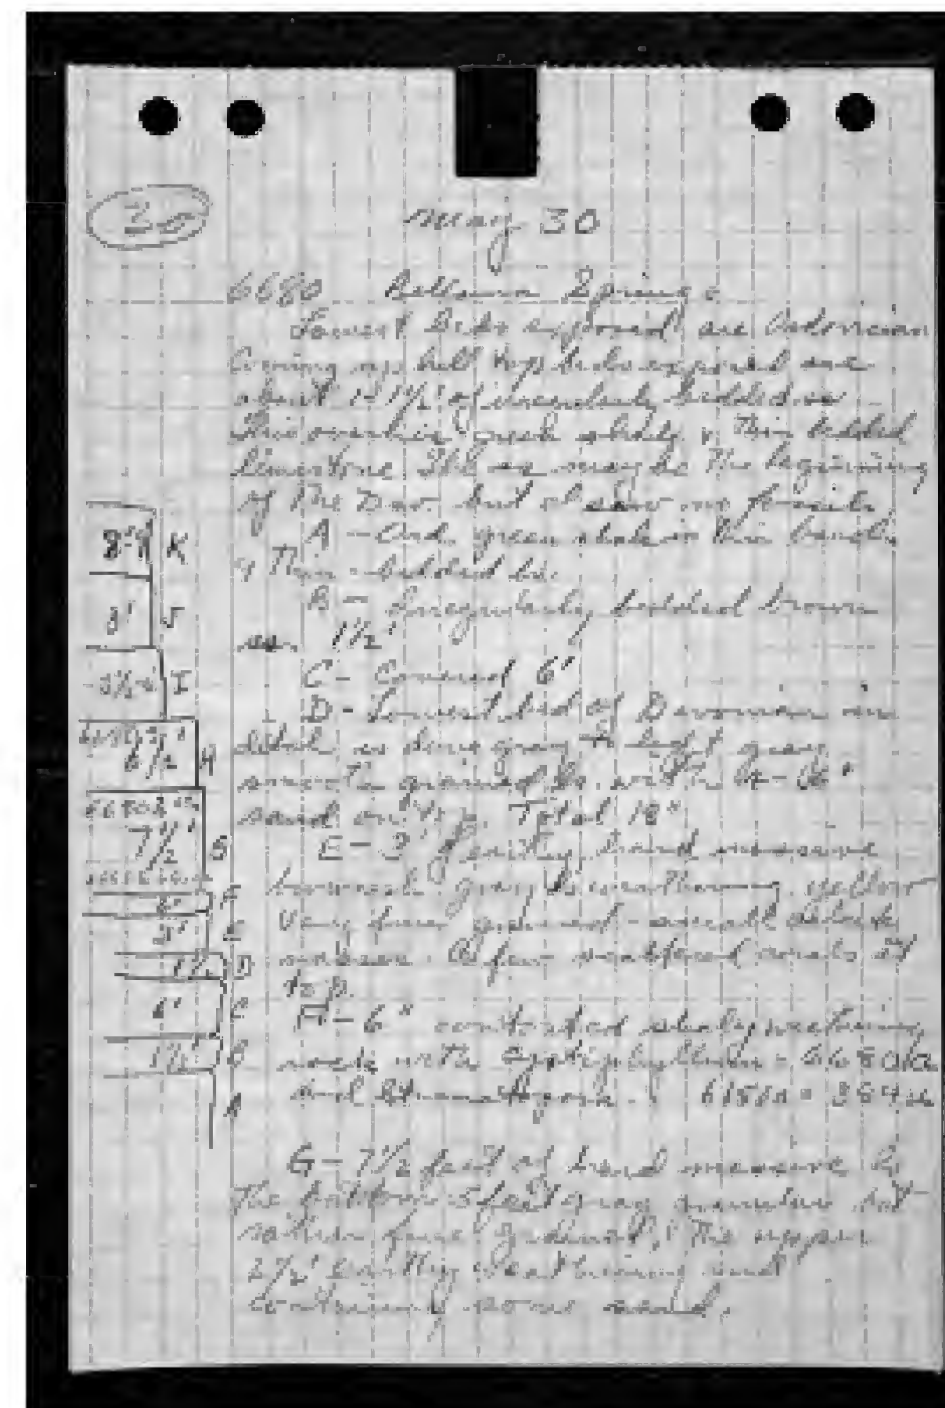 30
May 30
6680 Springs
Lowest beds exposed are Ordovician
Coming up hill top beds exposed are
about 1-1 1/2' of irregularly bedded ss
This overlies green shaly & thin bedded
limestone. The ss may be the beginning
of the Dev. but I saw no fossils
A - Ord. green shale in thin bands
& thin-bedded ls.
B - Irregularly bedded brown
ss. 1 1/2'
C - Covered 6'
D - Lowest bed of Devonian in
detail is gray to light gray
smooth grained ls. with 4-6"
sand on top. Total 18"
E - 3' earthy, hard massive
brownish gray ls weathering yellow
Very fine grained - small calcite
masses. A few scattered corals at
top.
F - 6" contorted shaly weathering
rock with = 6680a
and
G - 7 1/2 feet of hard massive ls
The bottom 5 feet gray but
rather fine grained, the upper
2 1/2' earthy weathering and
containing some sand.
K
3' J
I
6 1/2' H
7 1/2' G
6" F
3' E
1 1/2 D
6' C
1 1/2' B
A